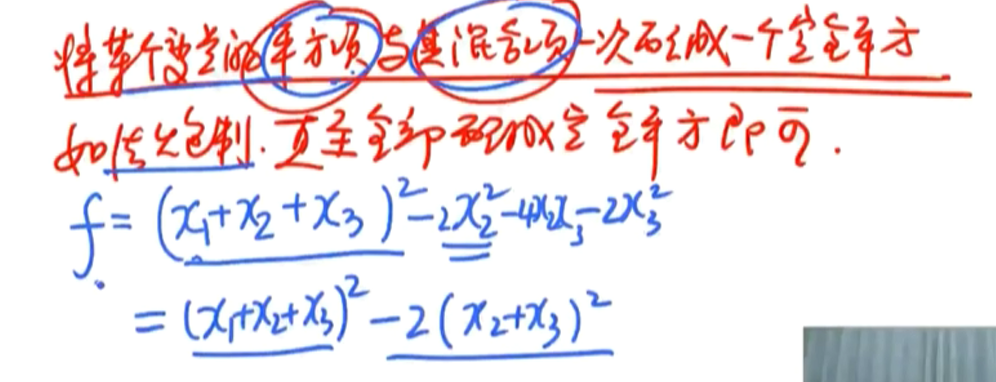 将某个变量的平方项与其混合项一次配成一个完全平方
如法炮制.直至全部配成完全平方即可.
f=(x₁+x₂+x₃)²-2x₂²-4x₂x₃-2x₃²
=(x₁+x₂+x₃)²-2(x₂+x₃)²